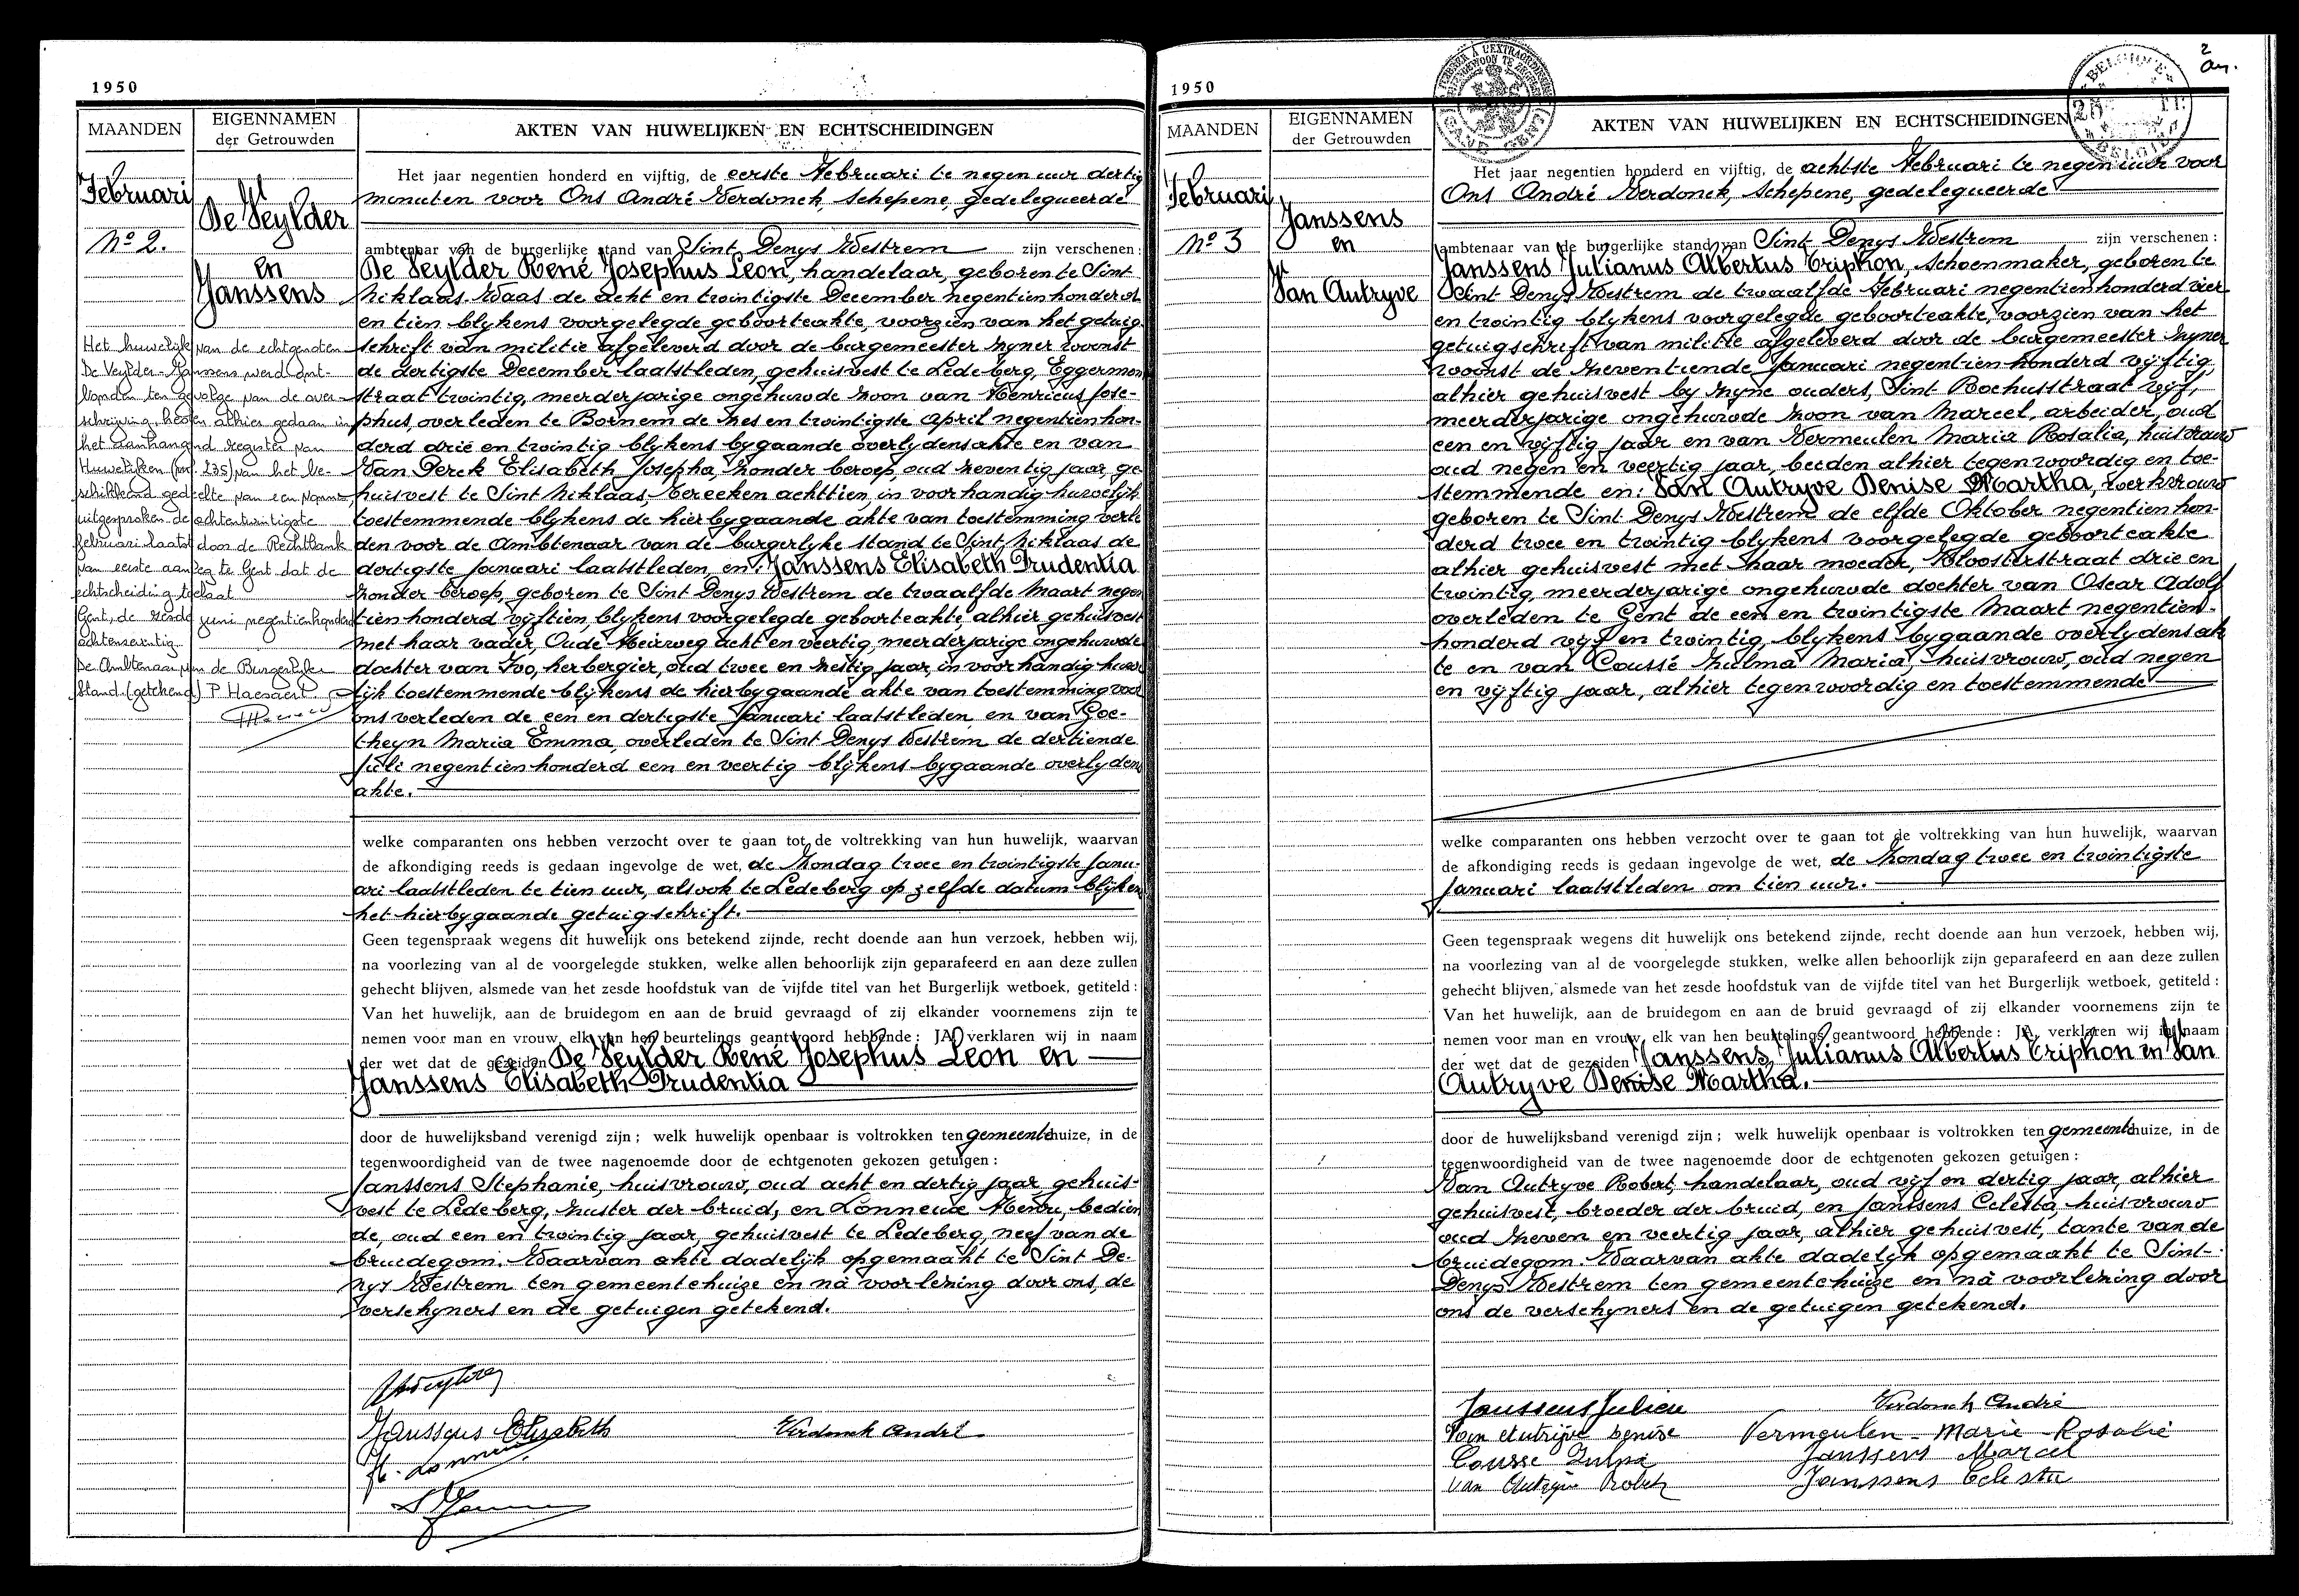 1950
MAANDEN
EIGENNAMEN
der Getrouwden
AKTEN VAN HUWELIJKEN EN ECHTSCHEIDINGEN
Februari
No 2.
De Veylder
en
Janssens
Het huwelijk van de echtgenoten
De Veylder-Janssens werd ont-
bonden ten gevolge van de over-
schrijving heden alhier gedaan in
het aanhangend register van
Huwelijken (nr. 235) van het be-
schikkend gedeelte van een vonnis,
uitgesproken de achtentwintigste
februari laatst door de Rechtbank
van eerste aanleg te Gent dat de
echtscheiding toelaat
Gent, de zesde juni negentienhonderd
De Ambtenaar van de Burgerlijke
Stand. (getekend) P. Haesaert
Het jaar negentien honderd en vijftig, de eerste Februari te negen uur dertig
minuten voor Ons André Verdonck, Schepene, gedelegueerde
ambtenaar van de burgerlijke stand van Sint Denys Westrem zijn verschenen:
De Veylder René Josephus Leon, handelaar, geboren te Sint
Niklaas-Waas de acht en twintigste December negentienhonderd
en tien blykens voorgelegde geboorteakte, voorzien van het getuig-
schrift van militie afgeleverd door de burgemeester zyner woonst
de dertigste December laatstleden, gehuisvest te Ledeberg, Eggermon
straat twintig, meerderjarige ongehuwde zoon van Henricus Jose-
phus, overleden te Bornem de zes en twintigste April negentienhon-
derd drie en twintig blykens bygaande overlydensakte en van
Van Perck Elisabeth Josepha, zonder beroep, oud zeventig jaar, ge-
huisvest te Sint Niklaas, Vereeken achttien, in voorhandig huwelijk
toestemmende blykens de hierbygaande akte van toestemming verle
den voor de Ambtenaar van de burgerlyke stand te Sint Niklaas de
dertigste Januari laatstleden, en: Janssens Elisabeth Prudentia
zonder beroep, geboren te Sint Denys Westrem de twaalfde Maart negen
tien honderd vijftien, blykens voorgelegde geboorteakte, alhier gehuisvest
met haar vader, Oude Heirweg acht en veertig, meerderjarige ongehuwde
dochter van Ivo, herbergier, oud twee en zestig jaar, in voorhandig huwe
lijk toestemmende blijkens de hierbygaande akte van toestemming voor
ons verleden de een en dertigste Januari laatstleden, en van Goe-
theyn Maria Emma, overleden te Sint Denys Westrem de dertiende
Juli negentienhonderd een en veertig blijkens bygaande overlydens
akte.
welke comparanten ons hebben verzocht over te gaan tot de voltrekking van hun huwelijk, waarvan
de afkondiging reeds is gedaan ingevolge de wet, de Zondag twee en twintigste Janu-
ari laatstleden te tien uur, alsook te Ledeberg op zelfde datum blijkens
het hierbygaande getuigschrift.
Geen tegenspraak wegens dit huwelijk ons betekend zijnde, recht doende aan hun verzoek, hebben wij,
na voorlezing van al de voorgelegde stukken, welke allen behoorlijk zijn geparafeerd en aan deze zullen
gehecht blijven, alsmede van het zesde hoofdstuk van de vijfde titel van het Burgerlijk wetboek, getiteld:
Van het huwelijk, aan de bruidegom en aan de bruid gevraagd of zij elkander voornemens zijn te
nemen voor man en vrouw, elk van hen beurtelings geantwoord hebbende: JA, verklaren wij in naam
der wet dat de gezeiden De Veylder René Josephus Leon en
Janssens Elisabeth Prudentia
door de huwelijksband verenigd zijn; welk huwelijk openbaar is voltrokken ten gemeentehuize, in de
tegenwoordigheid van de twee nagenoemde door de echtgenoten gekozen getuigen:
Janssens Stephanie, huisvrouw, oud acht en dertig jaar gehuis-
vest te Ledeberg, zuster der bruid, en Lonneux Henri, bedien
de, oud een en twintig jaar, gehuisvest te Ledeberg, neef van de
bruidegom. Waarvan akte dadelijk opgemaakt te Sint De-
nys Westrem ten gemeentehuize en na voorlezing door ons, de
verschyners en de getuigen getekend.
Janssens Elisabeth
Verdonck André
1950
2
MAANDEN
EIGENNAMEN
der Getrouwden
AKTEN VAN HUWELIJKEN EN ECHTSCHEIDINGEN
Februari
No 3
Janssens
en
Van Autryve
Het jaar negentien honderd en vijftig, de achtste Februari te negen uur voor
Ons André Verdonck, Schepene, gedelegueerde
ambtenaar van de burgerlijke stand van Sint Denys Westrem zijn verschenen:
Janssens Julianus Albertus Triphon, schoenmaker, geboren te
Sint Denys Westrem de twaalfde Februari negentienhonderd vier
en twintig blykens voorgelegde geboorteakte, voorzien van het
getuigschrift van militie afgeleverd door de burgemeester zyner
woonst de zeventiende Januari negentien honderd vijftig,
alhier gehuisvest by zyne ouders, Sint Rochusstraat vijf,
meerderjarige ongehuwde zoon van Marcel, arbeider, oud
een en vijftig jaar en van Vermeulen Maria Rosalia, huisvrouw
oud negen en veertig jaar, beiden alhier tegenwoordig en toe-
stemmende en: Van Autryve Denise Martha, werkvrouw
geboren te Sint Denys Westrem de elfde Oktober negentienhon-
derd twee en twintig blykens voorgelegde geboorteakte
alhier gehuisvest met haar moeder, Kloosterstraat drie en
twintig, meerderjarige ongehuwde dochter van Oscar Adolf
overleden te Gent de een en twintigste Maart negentien-
honderd vijf en twintig, blykens bygaande overlydensak
te en van Coussé Zulma Maria, huisvrouw, oud negen
en vijftig jaar, alhier tegenwoordig en toestemmende
welke comparanten ons hebben verzocht over te gaan tot de voltrekking van hun huwelijk, waarvan
de afkondiging reeds is gedaan ingevolge de wet, de Zondag twee en twintigste
Januari laatstleden om tien uur.
Geen tegenspraak wegens dit huwelijk ons betekend zijnde, recht doende aan hun verzoek, hebben wij,
na voorlezing van al de voorgelegde stukken, welke allen behoorlijk zijn geparafeerd en aan deze zullen
gehecht blijven, alsmede van het zesde hoofdstuk van de vijfde titel van het Burgerlijk wetboek, getiteld:
Van het huwelijk, aan de bruidegom en aan de bruid gevraagd of zij elkander voornemens zijn te
nemen voor man en vrouw, elk van hen beurtelings geantwoord hebbende: JA, verklaren wij in naam
der wet dat de gezeiden Janssens Julianus Albertus Triphon en Van
Autryve Denise Martha.
door de huwelijksband verenigd zijn; welk huwelijk openbaar is voltrokken ten gemeentehuize, in de
tegenwoordigheid van de twee nagenoemde door de echtgenoten gekozen getuigen:
Van Autryve Robert, handelaar, oud vijf en dertig jaar, alhier
gehuisvest, broeder der bruid, en Janssens Celesta, huisvrouw
oud zeven en veertig jaar, alhier gehuisvest, tante van de
bruidegom. Waarvan akte dadelijk opgemaakt te Sint-
Denys Westrem ten gemeentehuize en na voorlezing door
ons de verschyners en de getuigen getekend.
Janssens Julien
Verdonck André
Van Autrijve Denise
Vermeulen - Marie - Rosalie
Cousse Zulma
Janssens Marcel
Van Autryve Robert
Janssens Celesta